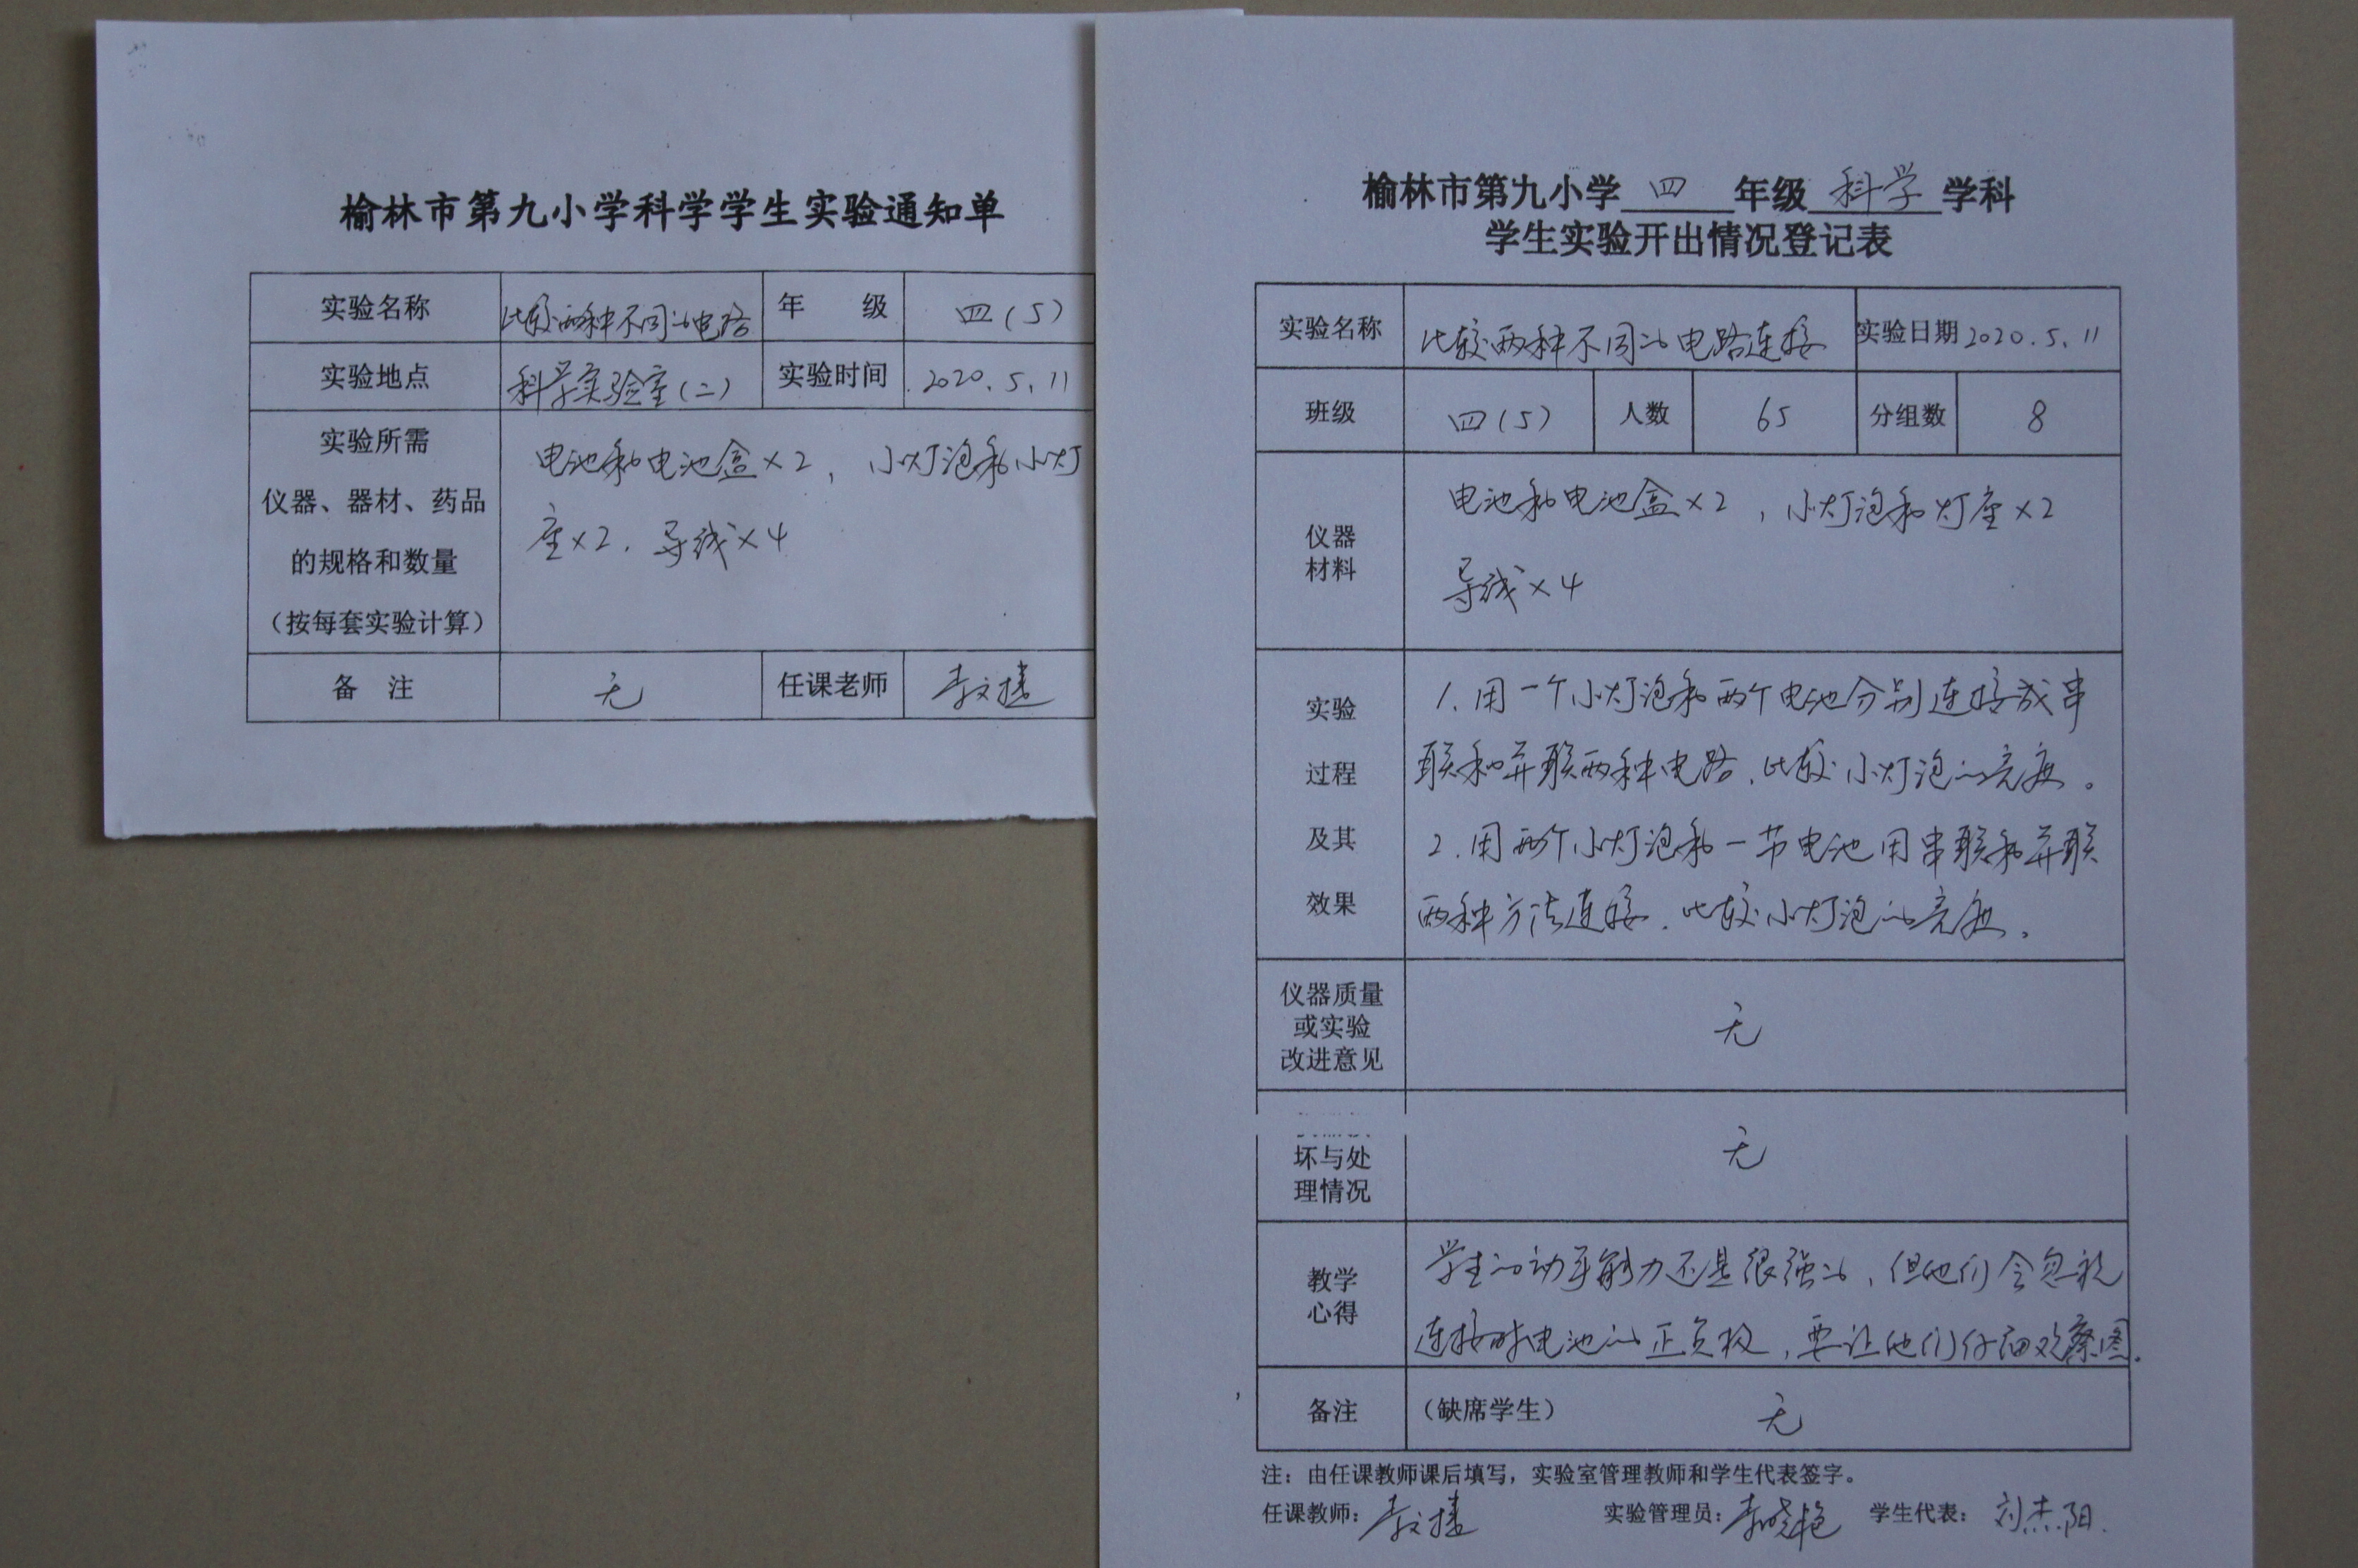 榆林市第九小学科学学生实验通知单
实验名称 比较两种不同的电路 年 级 四(5)
实验地点 科学实验室(二) 实验时间 2020.5.11
实验所需
仪器、器材、药品
的规格和数量
(按每套实验计算)
电池和电池盒×2, 小灯泡和小灯
座×2, 导线×4
备 注 无 任课老师
榆林市第九小学 四 年级 科学 学科
学生实验开出情况登记表
实验名称 比较两种不同的电路连接 实验日期 2020.5.11
班级 四(5) 人数 65 分组数 8
仪器
材料
电池和电池盒×2, 小灯泡和灯座×2
导线×4
实验
过程
及其
效果
1.用一个小灯泡和两个电池分别连接成串
联和并联两种电路,比较小灯泡的亮度。
2.用两个小灯泡和一节电池用串联和并联
两种方法连接,比较小灯泡的亮度。
仪器质量
或实验
改进意见
无
坏与处
理情况
无
教学
心得
学生的动手能力还是很强的,但他们会忽视
连接时电池的正负极,要让他们仔细观察图.
备注 (缺席学生) 无
注:由任课教师课后填写,实验室管理教师和学生代表签字。
任课教师: 实验管理员:李晓艳 学生代表:刘杰阳